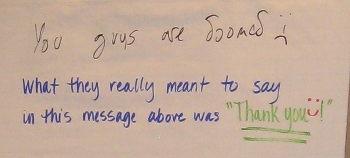 You guys are doomed :)
What they really meant to say
in this message above was "Thank you!"